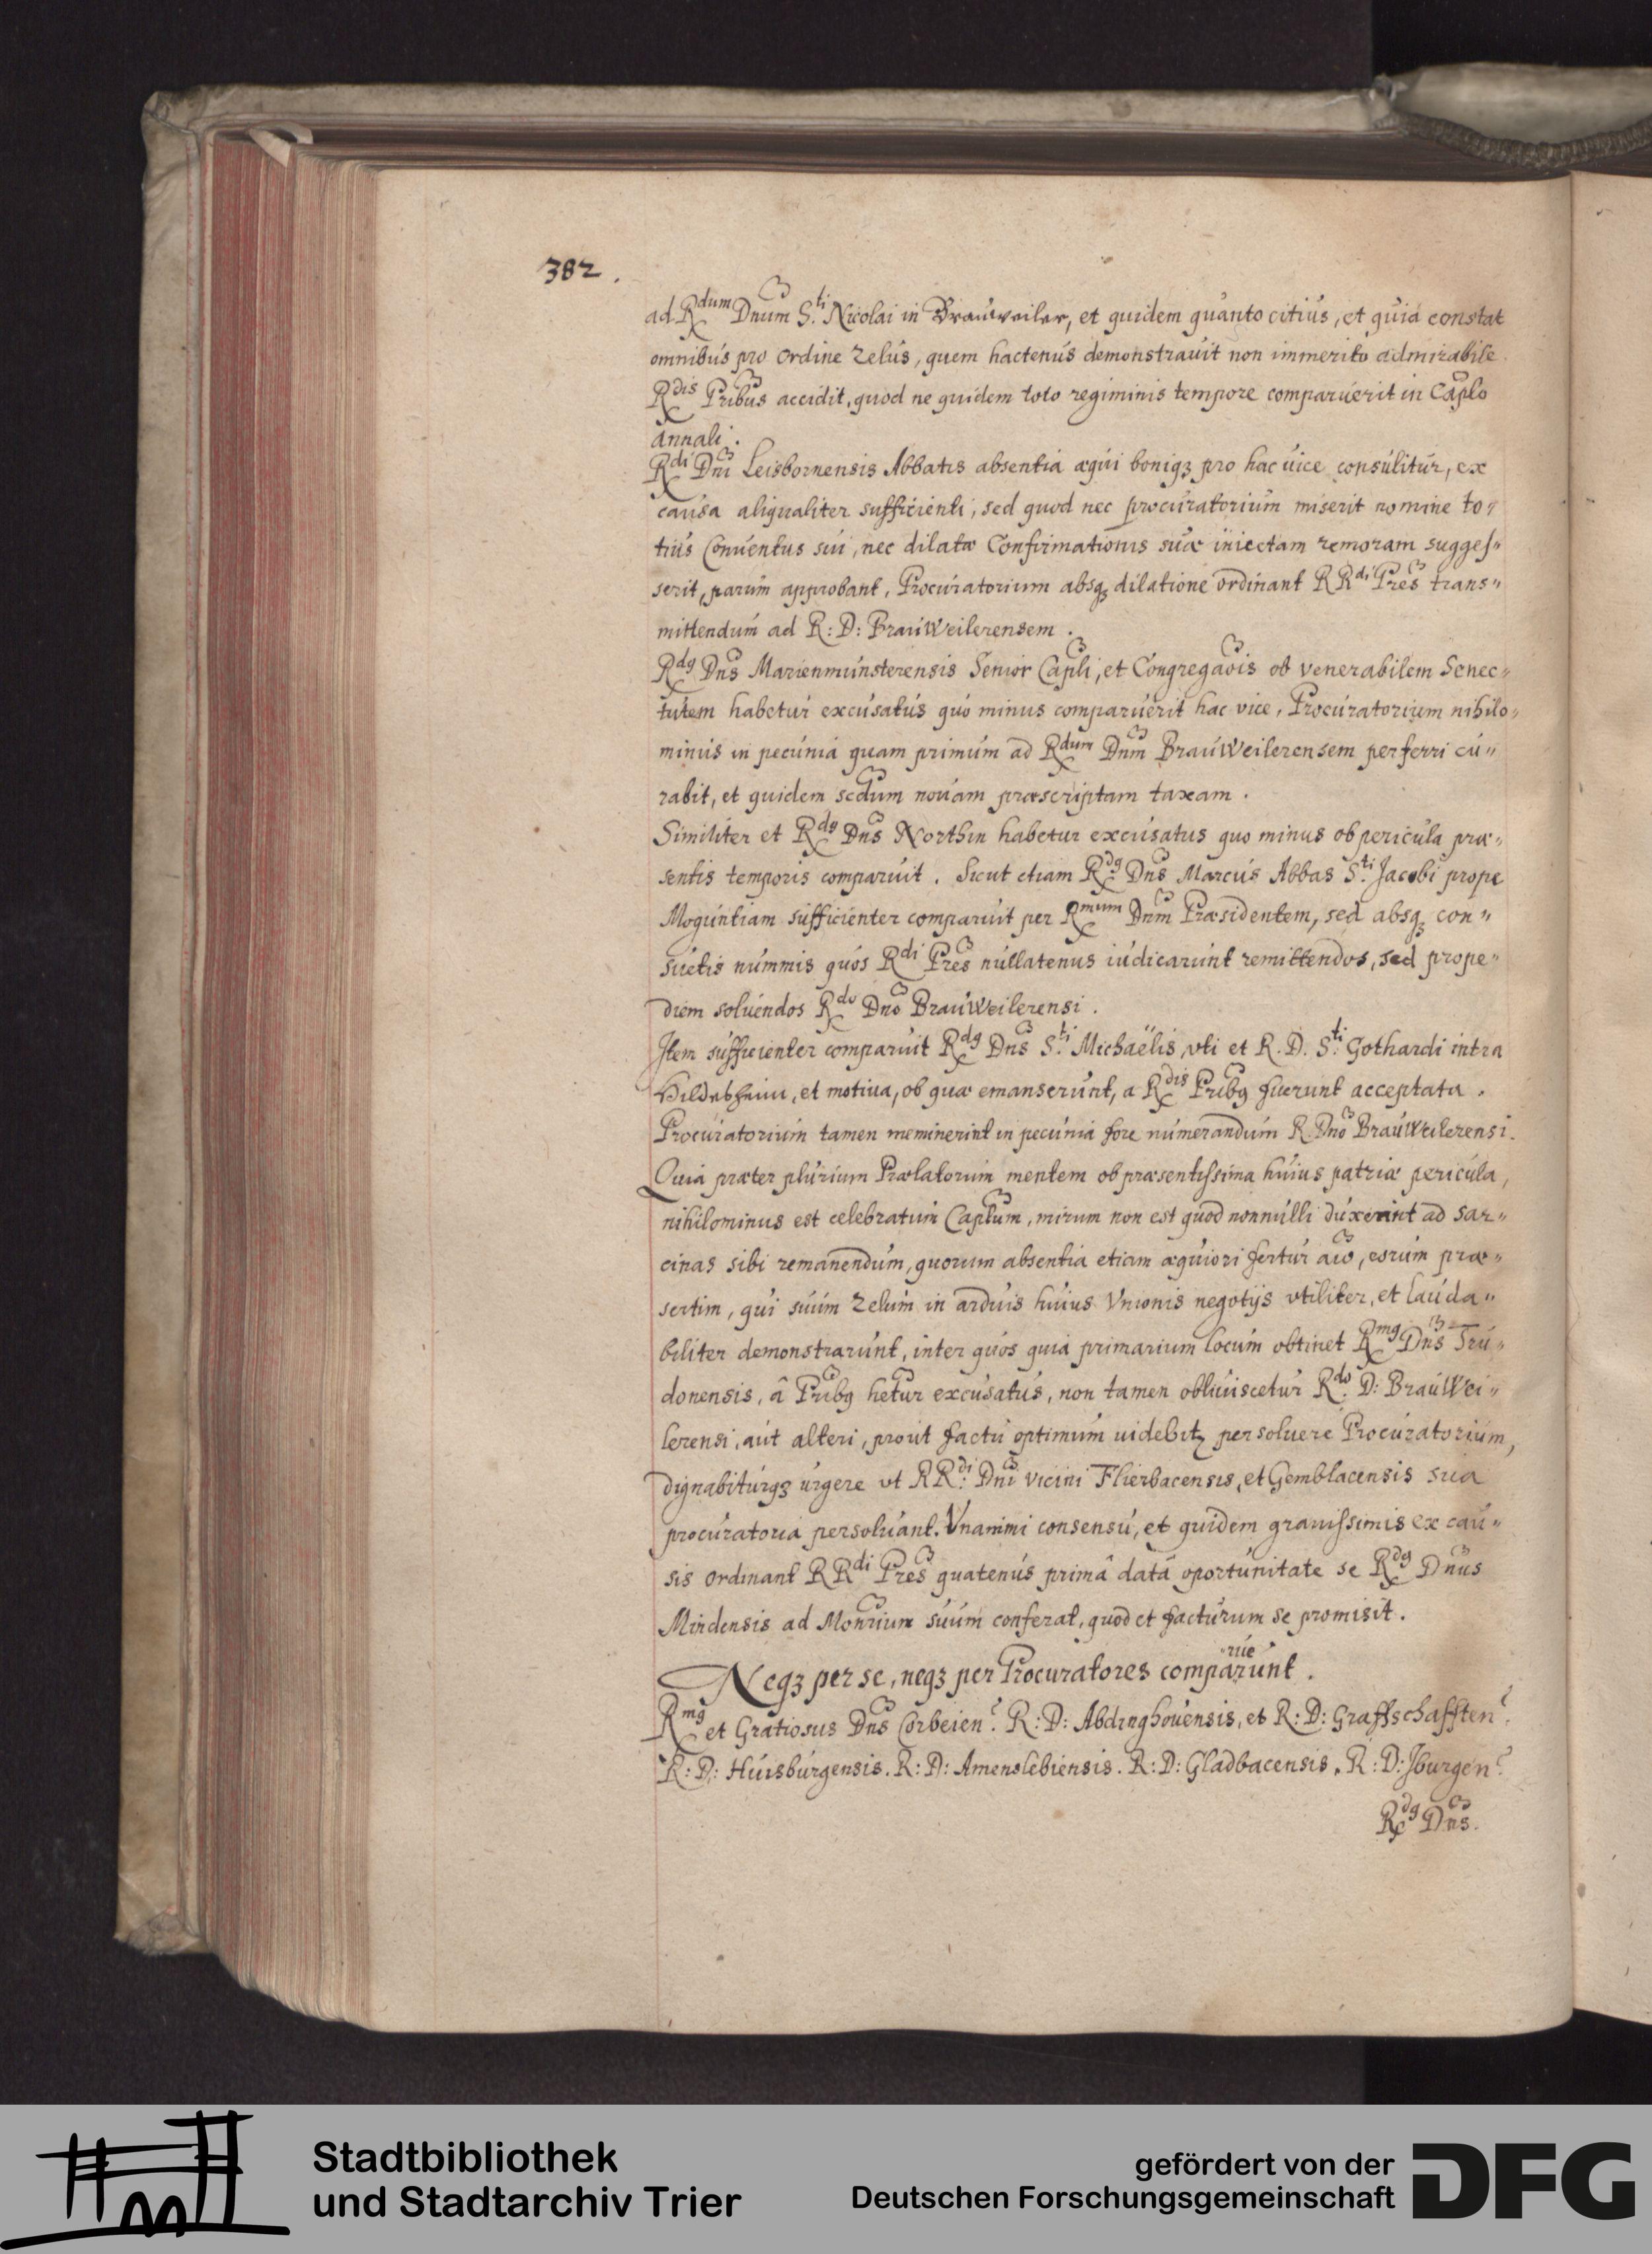 382.
ad Rdum Dnum S.ti Nicolai in Brauweiler, et quidem quanto citius, et quia constat
omnibus pro ordine zelus, quem hactenus demonstrauit non immerito admirabile
Rdis Pribus accidit, quod ne quidem toto regiminis tempore comparuerit in Caplo
annali.
Rdi Dni Leisbornensis Abbatis absentia æqui boniqꝫ pro hac uice consulitur, ex
causa aliqualiter sufficienti, sed quod nec procuratorium miserit nomine to„
tius Conuentus sui, nec dilatæ Confirmationis suæ iniectam remoram sugges„
serit, parum approbant, Procuratorium absqꝫ dilatione ordinant RRdi Pres trans„
mittendum ad R: D: BrauWeilerensem.
Rdꝰ Dns Marienmunsterensis Senior Capli, et Congregaois ob venerabilem Senec„
tutem habetur excusatus quo minus comparuerit hac vice, Procuratorium nihilo„
minus in pecunia quam primum ad Rdum Dnm BrauWeilerensem perferri cu„
rabit, et quidem scdum nouam præscriptam taxam.
Similiter et Rdꝰ Dns Northin habetur excusatus quo minus ob pericula præ„
sentis temporis comparuit. Sicut etiam Rdꝰ Dns Marcus Abbas S.ti Jacobi prope
Moguntiam sufficienter comparuit per Rmum Dnm Præsidentem, sed absqꝫ con„
suetis nummis quos Rdi Pres nullatenus iudicarunt remittendos, sed prope„
diem soluendos Rdo Dno BrauWeilerensi.
Item sufficienter comparuit Rdꝰ Dns S.ti Michaëlis, vti et R. D. S.ti Gothardi intra
Hildesheim, et motiua, ob quæ emanserunt, a Rdis Pribꝰ fuerunt acceptata.
Procuratorium tamen meminerint in pecunia fore numerandum R. Dno BrauWeilerensi.
Quia præter plurium Prælatorum mentem ob præsentissima huius patriæ pericula,
nihilominus est celebratum Caplum, mirum non est quod nonnulli duxerint ad sar„
cinas sibi remanendum, quorum absentia etiam æquiori fertur aio, eorum præ„
sertim, qui suum zelum in arduis huius Vnionis negotijs vtiliter, et lauda„
biliter demonstrarunt, inter quos quia primarium locum obtinet Rmꝰ Dns Tru„
donensis, â Pribꝰ hetur excusatus, non tamen obliuiscetur Rdo. D: BrauWei„
lerensi, aut alteri, prout factu optimum uidebitꝛ persoluere Procuratorium,
dignabiturqꝫ urgere vt RRdi. Dni vicini Flierbacensis, et Gemblacensis sua
procuratoria persoluant. Vnanimi consensu, et quidem grauissimis ex cau„
sis ordinant RRdi Pres quatenus primâ datâ oportunitate se Rdꝰ Dnus
Mindensis ad Monrium suum conferat, quod et facturum se promisit.
Neqꝫ per se, neqꝫ per Procuratores comparuerunt.
Rmꝰ et Gratiosus Dns Corbeien. R: D: Abdinghouensis, et R: D: Graffschafften.
R: D: Huisburgensis. R: D: Amenslebiensis. R: D: Gladbacensis. R: D: Iburgen.
Rdꝰ Dns.
Stadtbibliothek
und Stadtarchiv Trier
gefördert von der
Deutschen Forschungsgemeinschaft
DFG